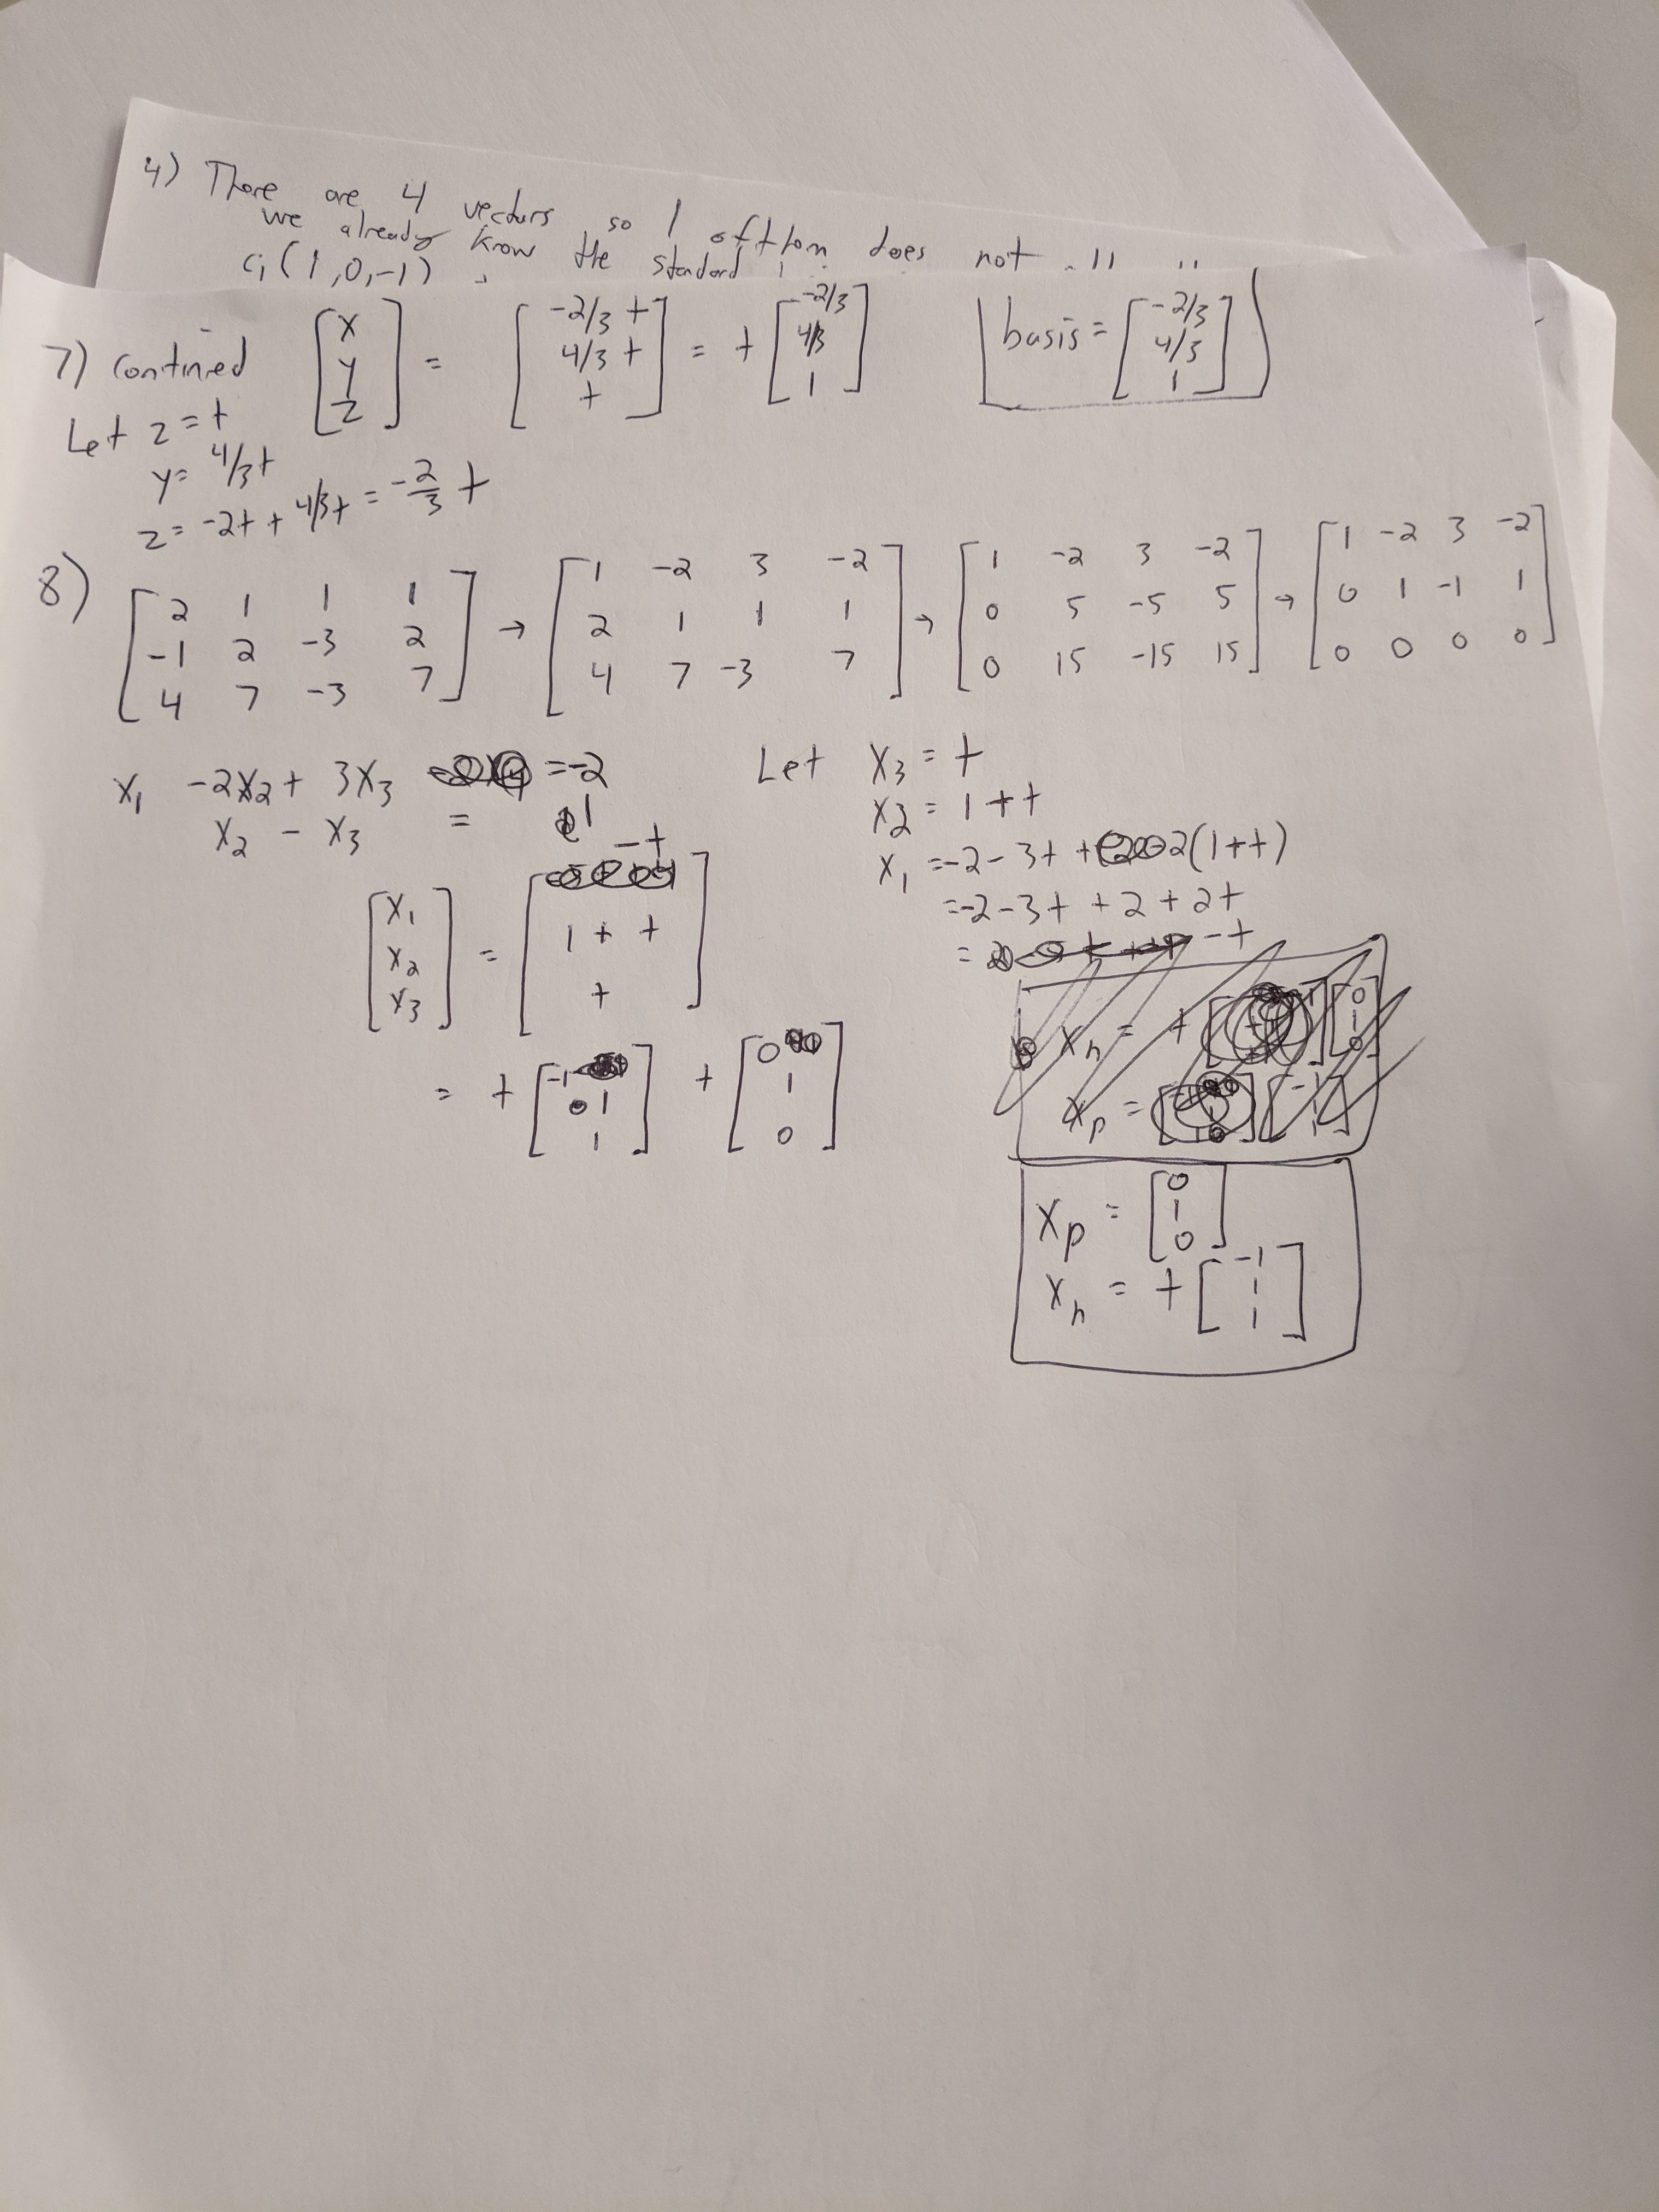 4) There are 4 vectors so 1 of them does not
we already know the standard
c₁(1,0,-1)
7) continued [x y z] = [-2/3 t 4/3 t t] = t [-2/3 4/3 1] basis = [-2/3 4/3 1]
Let z = t
y = 4/3t
z = -2t + 4/3t = -2/3 t
8) [2 1 1 1; -1 2 -3 2; 4 7 -3 7] → [1 -2 3 -2; 2 1 1 1; 4 7 -3 7] → [1 -2 3 -2; 0 5 -5 5; 0 15 -15 15] → [1 -2 3 -2; 0 1 -1 1; 0 0 0 0]
x₁ -2x₂ + 3x₃ = -2
x₂ - x₃ = 1
Let x₃ = t
x₂ = 1 + t
x₁ = -2 - 3t + 2(1+t)
= -2 - 3t + 2 + 2t
= -t
[x₁ x₂ x₃] = [-t 1 + t t]
= t [-1 1 1] + [0 1 0]
xₕ = t [-1 [0 1 0]
xₚ = [-1 1
xₚ = [0 1 0]
xₕ = t [-1 1 1]